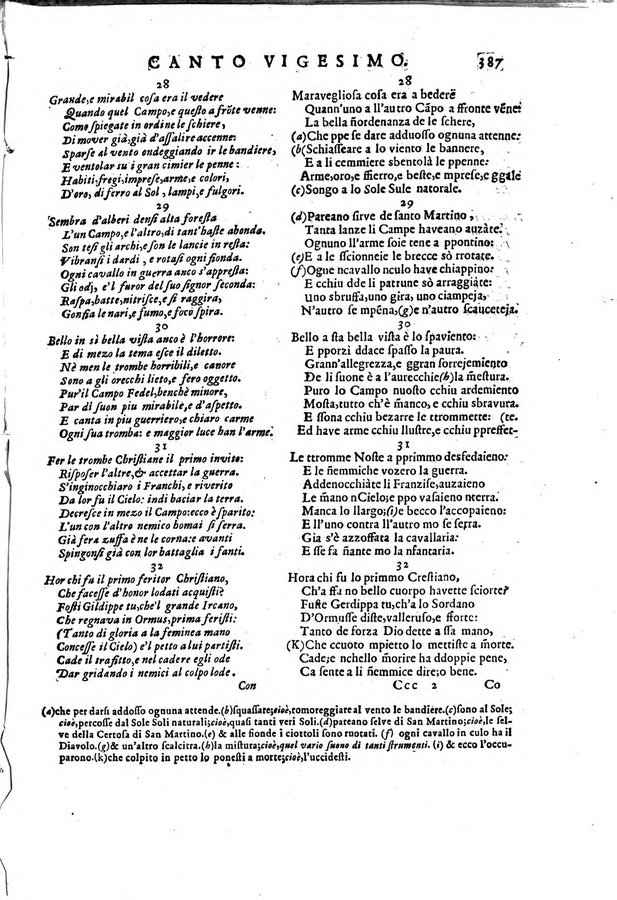 CANTO VIGESIMO. 387
28
Grande, e mirabil cosa era il vedere
Quando quel Campo, e questo a frõte venne:
Come spiegate in ordine le schiere,
Di mover già, già d'assalire accenne:
Sparse al vento ondeggiando ir le bandiere,
E ventolar su i gran cimier le penne:
Habiti, fregi, imprese, arme, e colori,
D'oro, di ferro al Sol, lampi, e fulgori.
29
Sembra d'alberi densi alta foresta
L'un Campo, e l'altro; di tant'haste abonda.
Son tesi gli archi, e son le lancie in resta:
Vibransi i dardi, e rotasi ogni fionda.
Ogni cavallo in guerra anco s'appresta:
Gli odj, e'l furor del suo signor seconda:
Raspa, batte, nitrisce, e si raggira,
Gonfia le nari, e fumo, e foco spira.
30
Bello in sì bella vista anco è l'horrore:
E di mezo la tema esce il diletto.
Nè men le trombe horribili, e canore
Sono a gli orecchi lieto, e fero oggetto.
Pur'il Campo Fedel, benchè minore,
Par di suon piu mirabile, e d'aspetto.
E canta in piu guerriero, e chiaro carme
Ogni sua tromba: e maggior luce han l'arme.
31
Fer le trombe Christiane il primo invito:
Risposer l'altre, & accettar la guerra.
S'inginocchiaro i Franchi, e riverito
Da lor fu il Cielo: indi baciar la terra.
Decresce in mezo il Campo: ecco è sparito:
L'un con l'altro nemico homai si serra.
Già fera zuffa è ne le corna: e avanti
Spingonsi già con lor battaglia i fanti.
32
Hor chi fu il primo feritor Christiano,
Che facesse d'honor lodati acquisti?
Fosti Gildippe tu, che'l grande Ircano,
Che regnava in Ormus, prima feristi:
(Tanto di gloria a la feminea mano
Concesse il Cielo) e'l petto a lui partisti.
Cade il trafitto, e nel cadere egli ode
Dar gridando i nemici al colpo lode.
Con
28
Maravegliosa cosa era a bedere
Quann'uno a ll'autro Cãpo a ffronte vẽne:
La bella ñordenanza de le schere,
(a) Che ppe se dare adduosso ognuna attenne.
(b) Schiasseare a lo viento le bannere,
E a li cemmiere sbentolà le ppenne:
Arme, oro, e ffierro, e beste, e mprese, e ggale
(c) Songo a lo Sole Sule natorale.
29
(d) Pareano sirve de santo Martino;
Tanta lanze li Campe haveano auzate.
Ognuno ll'arme soie tene a ppontino:
(e) E a le sscionneie le brecce sò rrotate.
(f) Ogne ncavallo nculo have chiappino:
E cchiu dde li patrune sò arraggiate:
Uno sbruffa, uno gira, uno ciampeja,
N'autro se mpẽna, (g) e n'autro scauceteja.
30
Bello a sta bella vista è lo spaviento:
E pporzì ddace spasso la paura.
Grann'allegrezza, e ggran sorrejemiento
De li suone è a l'aurecchie (h) la mestura.
Puro lo Campo nuosto cchiu ardemiento
Mosta, tutto ch'è manco, e cchiu sbravura.
E ssona cchiu bezarre le ttrommette: (te.
Ed have arme cchiu llustre, e cchiu ppreffet-
31
Le ttromme Noste a pprimmo desfedaieno:
E le ñemmiche vozero la guerra.
Addenocchiàte li Franzise, auzaieno
Le mãno nCielo; e ppo vasaieno nterra.
Manca lo llargo; (i) e becco l'accopaieno:
E ll'uno contra ll'autro mo se serra.
Gia s'è azzoffata la cavallaria:
E sse fa ñante mo la nfantaria.
32
Hora chi fu lo primmo Crestiano,
Ch'a ffa no bello cuorpo havette sciorte?
Fuste Gerdippa tu, ch'a lo Sordano
D'Ormusse diste, valleruso, e fforte:
Tanto de forza Dio dette a ssa mano,
(K) Che ccuoto mpietto lo mettiste a mõrte.
Cade; e nchello mõrire ha ddoppie pene,
Ca sente a li ñemmice dire; o bene.
Ccc 2 Co
(a) che per darsi addosso ognuna attende. (b) squassare; cioè, romoreggiare al vento le bandiere. (c) sono al Sole;
cioè, percosse dal Sole Soli naturali; cioè, quasi tanti veri Soli. (d) pareano selve di San Martino; cioè, le sel-
ve della Certosa di San Martino. (e) & alle fionde i ciottoli sono ruotati. (f) ogni cavallo in culo ha il
Diavolo. (g) & un'altro scalcitra. (h) la mistura; cioè, quel vario suono di tanti strumenti. (i) & ecco l'occu-
parono. (k) che colpito in petto lo ponesti a morte; cioè, l'uccidesti.